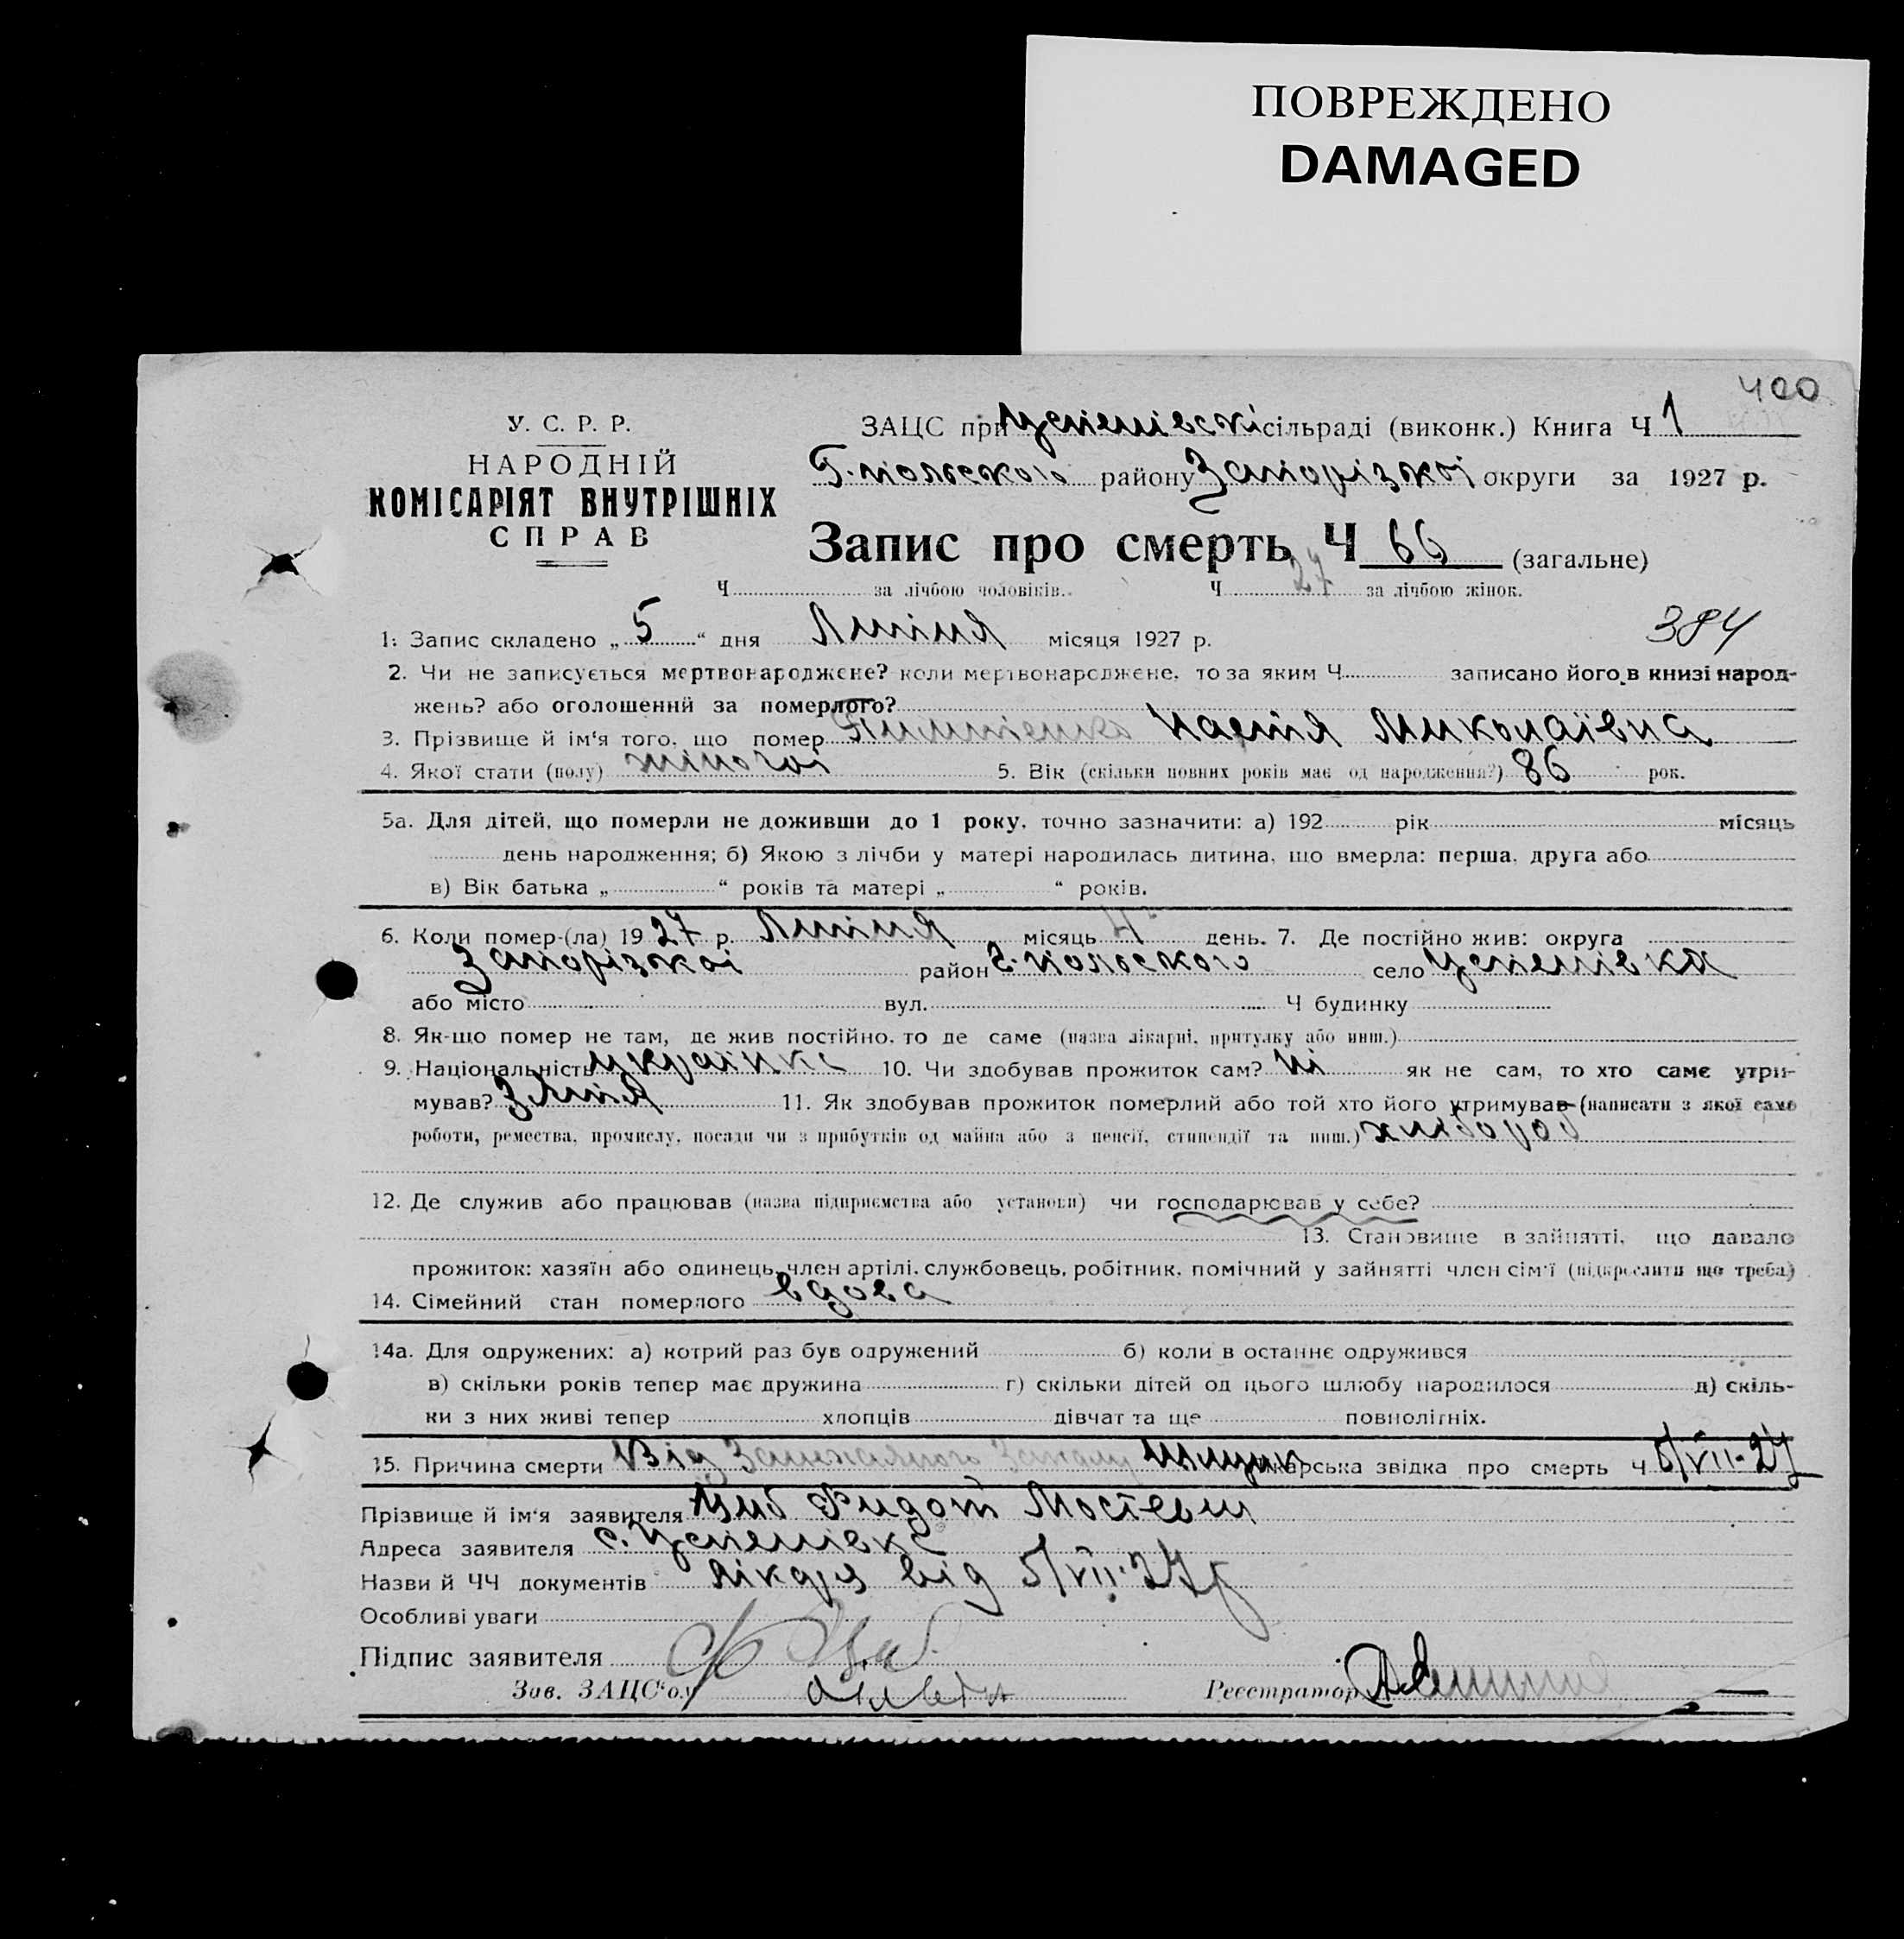 ПОВРЕЖДЕНО
DAMAGED
400
У. С. Р. Р.
НАРОДНІЙ
КОМІСАРІЯТ ВНУТРІШНІХ
СПРАВ
ЗАЦС при Успенівскі сільраді (виконк.) Книга Ч 1
Г.-польского району Запорізкоі округи за 1927 р.
Запис про смерть Ч 66 (загальне)
Ч за лічбою чоловіків. Ч 27 за лічбою жінок.
384
1. Запис складено „ 5 “ дня Липня місяця 1927 р.
2. Чи не записується мертвонароджене? коли мертвонароджене, то за яким Ч записано його в книзі народ-
жень? або оголошений за померлого?
3. Прізвище й ім‘я того, що помер Настя Миколаівна
4. Якої стати (полу) жіночоі 5. Вік (скільки повних років має од народження?) 86 рок.
5а. Для дітей, що померли не доживши до 1 року, точно зазначити: а) 192 рік місяць
день народження; б) Якою з лічби у матері народилась дитина, що вмерла: перша, друга або
в) Вік батька „ “ років та матері „ “ років.
6. Коли помер-(ла) 1927 р. Липня місяць 4 день. 7. Де постійно жив: округа
Запорізкоі район Г.-польского село Успенівка
або місто вул. Ч будинку
8. Як-що помер не там, де жив постійно, то де саме (назва лікарні, притулку або инш.)
9. Національність украінка 10. Чи здобував прожиток сам? Ні як не сам, то хто саме утри-
мував? Зятя 11. Як здобував прожиток померлий або той хто його утримував (написати з якої саме
роботи, ремества, промислу, посади чи з прибутків од майна або з пенсії, стипендії та инш.) хлібороб
12. Де служив або працював (назва підприємства або установи) чи господарював у себе?
13. Становище в зайнятті, що давало
прожиток: хазяїн або одинець, член артілі, службовець, робітник, помічний у зайнятті член сім‘ї (підкреслити що треба)
14. Сімейний стан померлого вдова
14а. Для одружених: а) котрий раз був одружений б) коли в останнє одружився
в) скільки років тепер має дружина г) скільки дітей од цього шлюбу народилося д) скіль-
ки з них живі тепер хлопців дівчат та ще повнолітніх.
15. Причина смерти Від лікарська звідка про смерть Ч 5/VII-27
Прізвище й ім‘я заявителя Циб Фидот
Адреса заявителя с. Успенівка
Назви й ЧЧ документів лікаря від 5/VII-27 р
Особливі уваги
Підпис заявителя Ф Циб
Зав. ЗАЦС‘ом Реєстратор